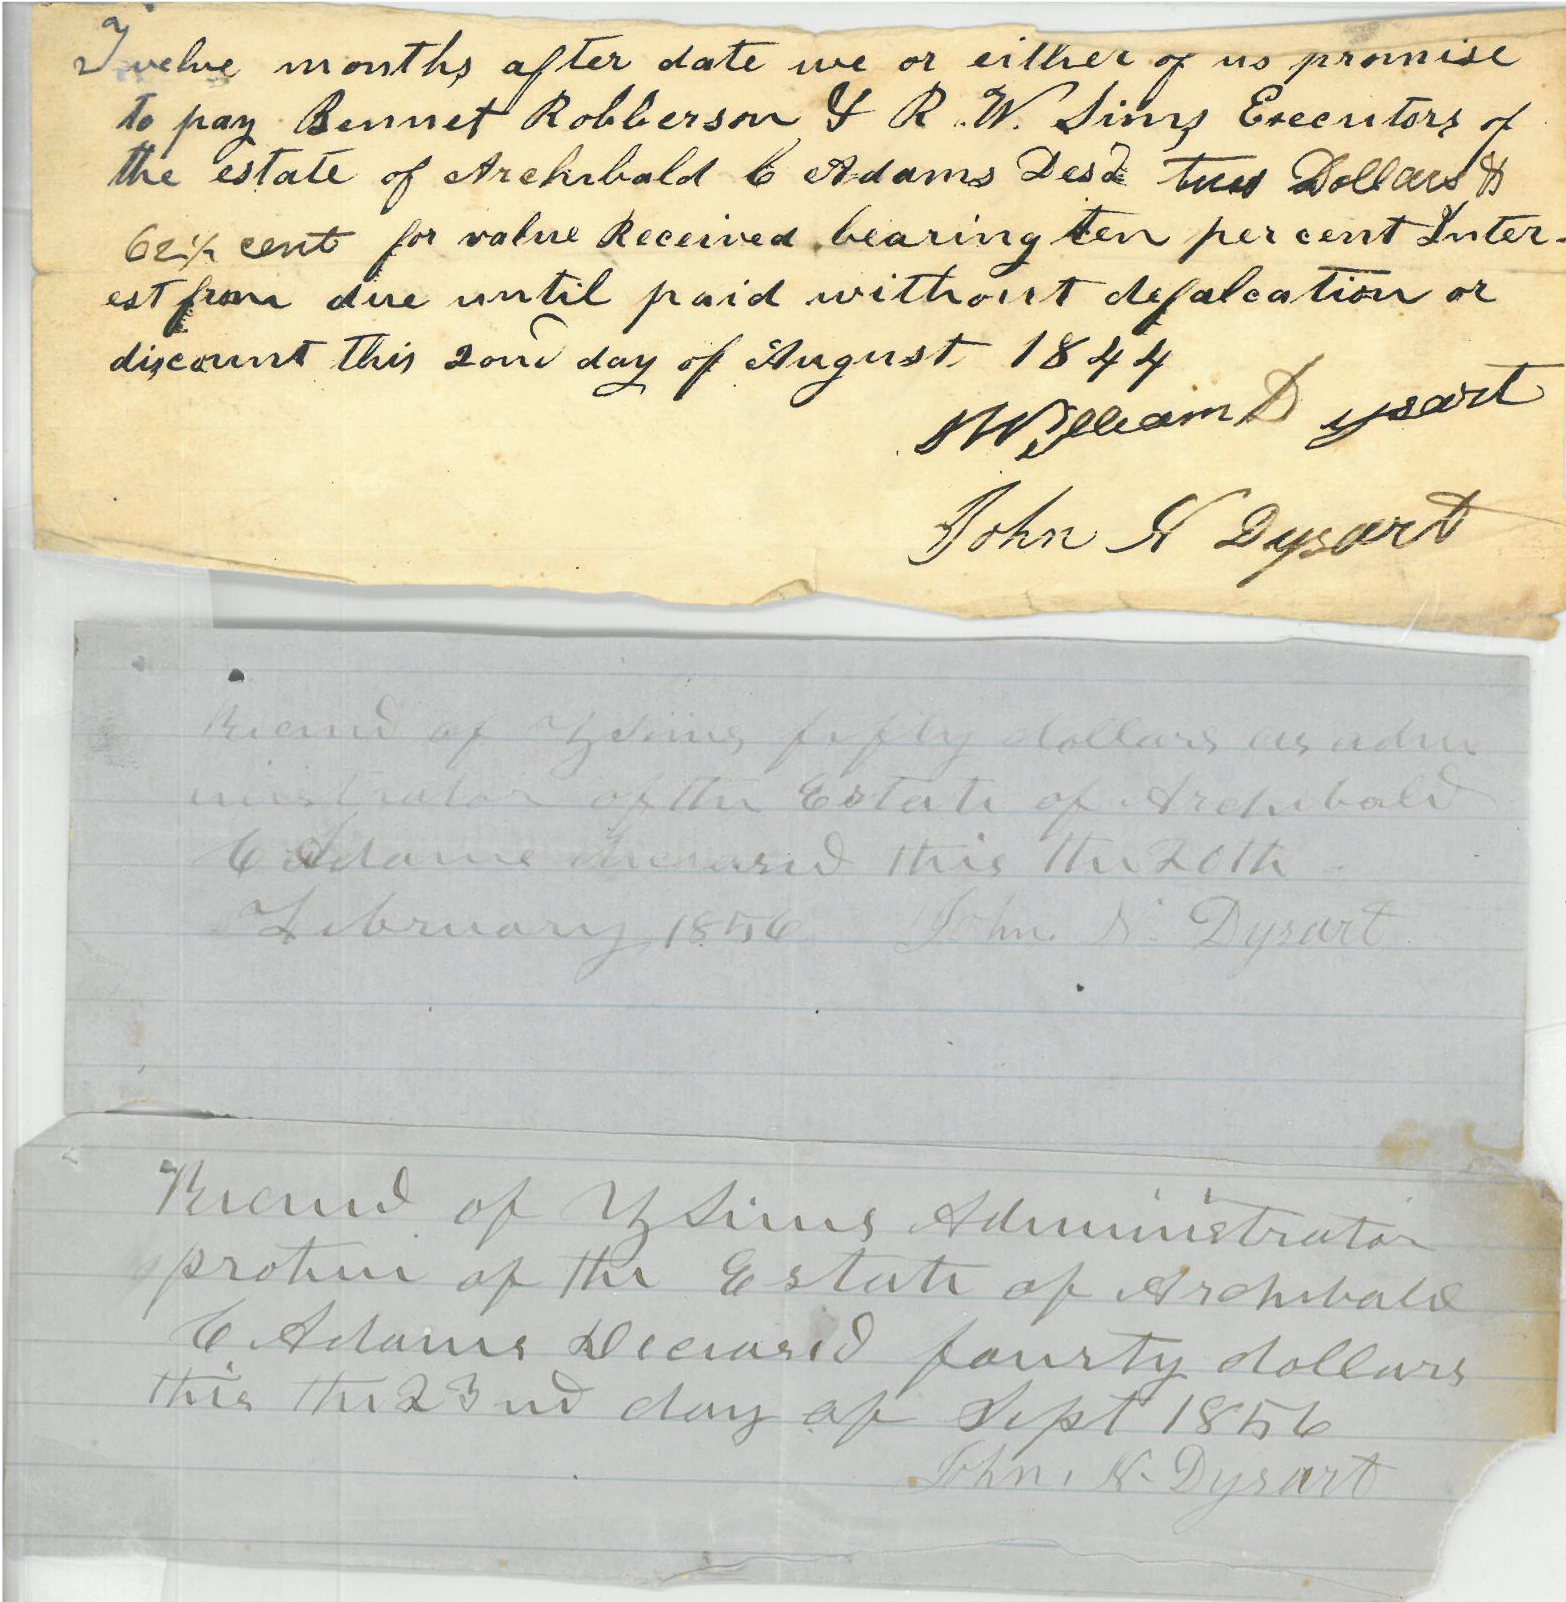 Twelve months after date we or either of us promise
to pay Bennet Robberson & R. W. Sims Executors of
the estate of Archibald C Adams Des'd two Dollars &
62½ cent for value Received bearing ten per cent Inter-
est from due until paid without defalcation or
discount this 2ond day of August 1844
William Dysart
John N Dysart
Recevd of Y Sims fifty dollars as admi
nistrator of the Estate of Archibald
C Adams Deceased this the 20th
February 1856 John. N. Dysart
Recevd of Y Sims Administrator
protem of the Estate of Archibald
C Adams Deceased fourty dollars
this the 23nd day of Sept 1856
John. N. Dysart